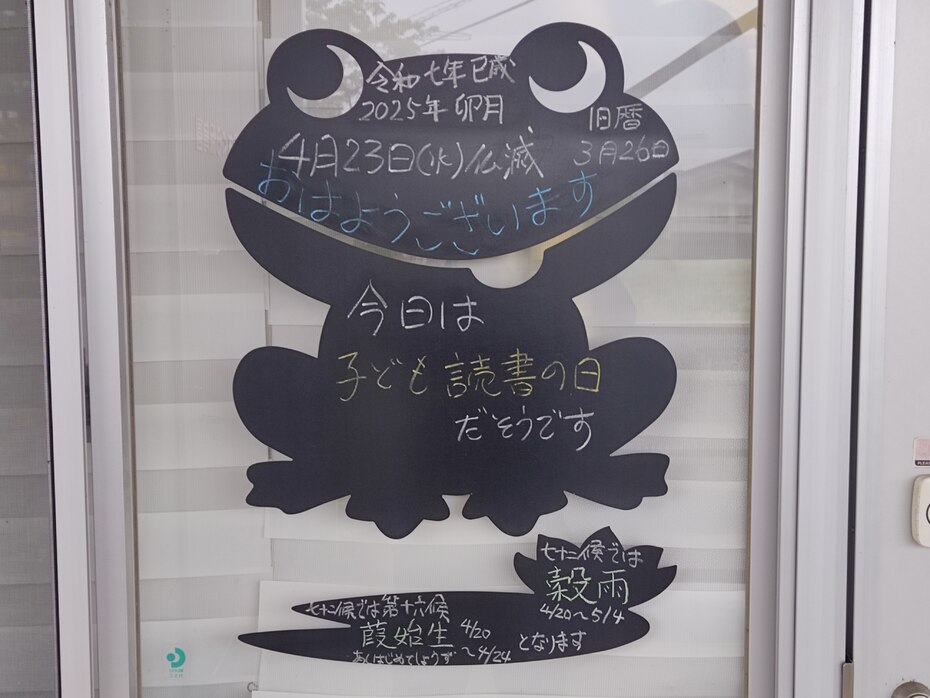 令和七年巳歳
2025年 卯月
旧暦
4月23日(水)仏滅 3月26日
おはようございます
今日は
子ども読書の日
だそうです
七十二候では
穀雨
4/20～5/4
七十二候では第十六候
葭始生 4/20～4/24 となります
あしはじめてしょうず